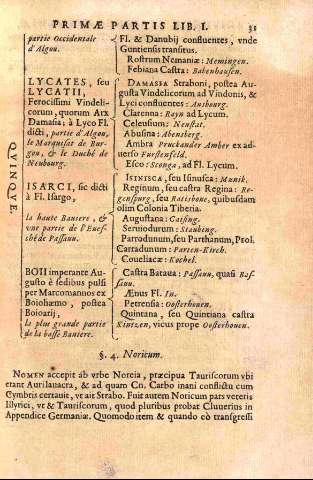 PRIMÆ PARTIS LIB. I. 35
partie Occidentale d'Algou.
Fl. & Danubij confluentes, vnde
Guntiensis transitus.
Rostrum Nemaniæ: Memingen.
Febiana Castra: Babenhausen.
QVINQVE
LYCATES, seu
LYCATII,
Ferocissimi Vindeli-
corum, quorum Arx
Damasia; à Lyco Fl.
dicti, partie d'Algou,
le Marquisat de Bur-
gou, & le Duché de
Neubourg.
DAMASIA Straboni, postea Au-
gusta Vindelicorum ad Vindonis, &
Lyci confluentes: Ausbourg.
Clarenna: Rayn ad Lycum.
Celeusum: Neustat.
Abusina: Abensberg.
Ambra Pruckander Amber ex ad-
uerso Furstenfeld.
Esco: Sconga, ad Fl. Lycum.
ISARCI, sic dicti
à Fl. Isargo,
la haute Bauiere, &
vne partie de l'Euef-
ché de Passau.
ISINISCA, seu Isinusca: Munik.
Reginum, seu castra Regina: Re-
genspurg, seu Ratisbone, quibusdam
olim Colonia Tiberia.
Augustana: Castsing.
Seruiodurum: Staubing.
Parrodunum, seu Parthanum, Ptol.
Carradunum: Parten-Kirch.
Coueliacæ: Kochel.
BOII imperante Au-
gusto è sedibus pulsi
per Marcomannos ex
Boiohæmo, postea
Boioarij,
la plus grande partie
de la basse Bauiere.
Castra Bataua: Passau, quasi Bas-
sau.
Ænus Fl. In.
Petrensia: Oosterhouen.
Quintana, seu Quintiana castra
Kintzen, vicus prope Oosterhouen.
§. 4. Noricum.
NOMEN accepit ab vrbe Noreia, præcipua Tauriscorum vbi
erant Aurilauacra, & ad quam Cn. Carbo inani conflictu cum
Cymbris certauit, vt ait Strabo. Fuit autem Noricum pars veteris
Illyrici, vt & Tauriscorum, quod pluribus probat Cluuerius in
Appendice Germaniæ. Quomodo item & quando eò transgressi